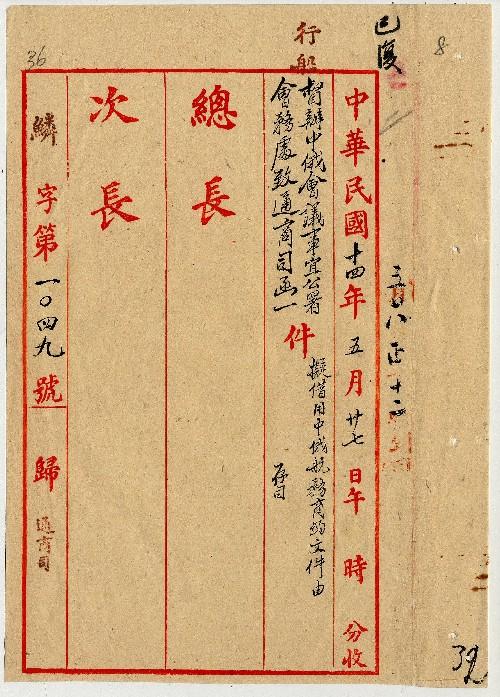 8
已復
行船
36
中華民國十四年五月廿七日午 時 分收
督辦中俄會議事宜公署
會務處致通商司函一
件
擬借用中俄航務商約文件由
存司
總長
次長
鱗字第一〇四九號歸通商司